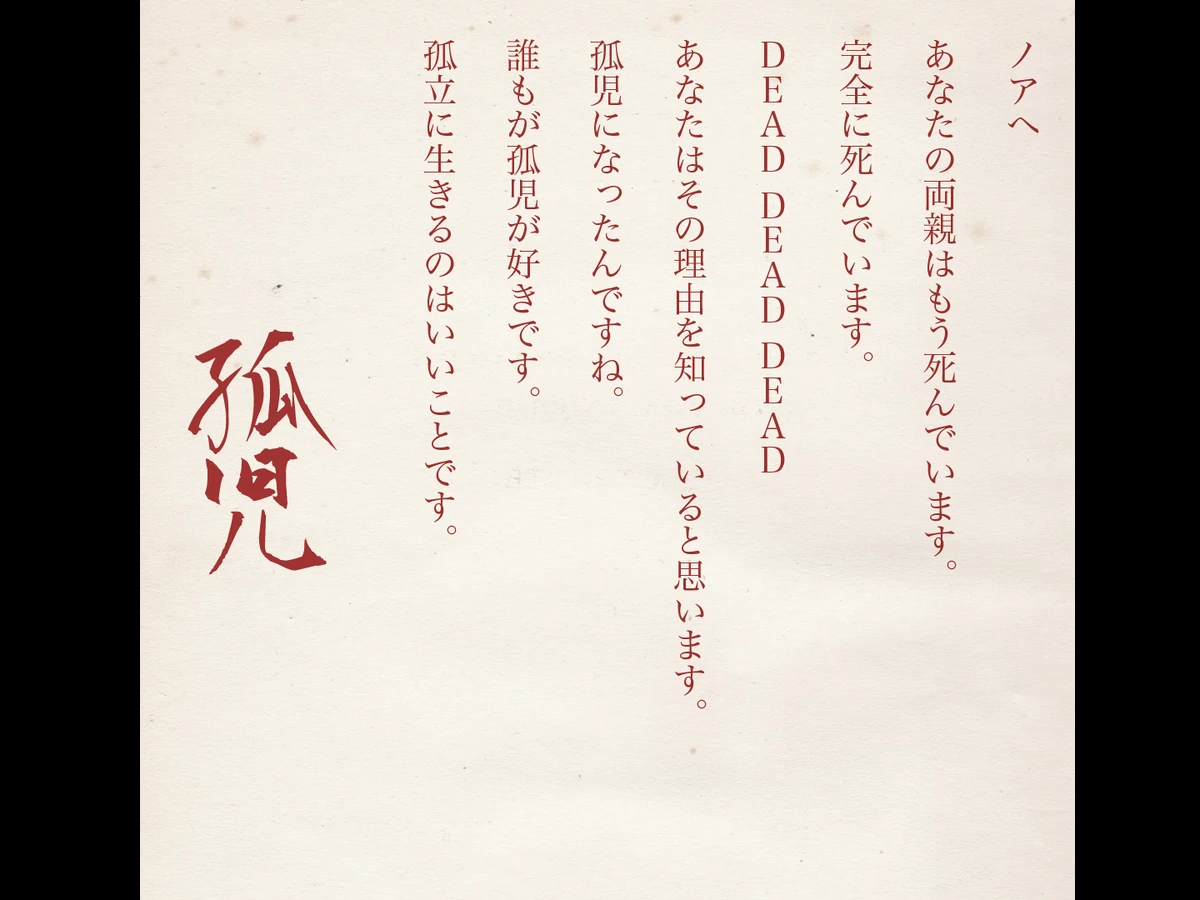 ノアへ
あなたの両親はもう死んでいます。
完全に死んでいます。
DEAD DEAD DEAD
あなたはその理由を知っていると思います。
孤児になったんですね。
誰もが孤児が好きです。
孤立に生きるのはいいことです。
孤児